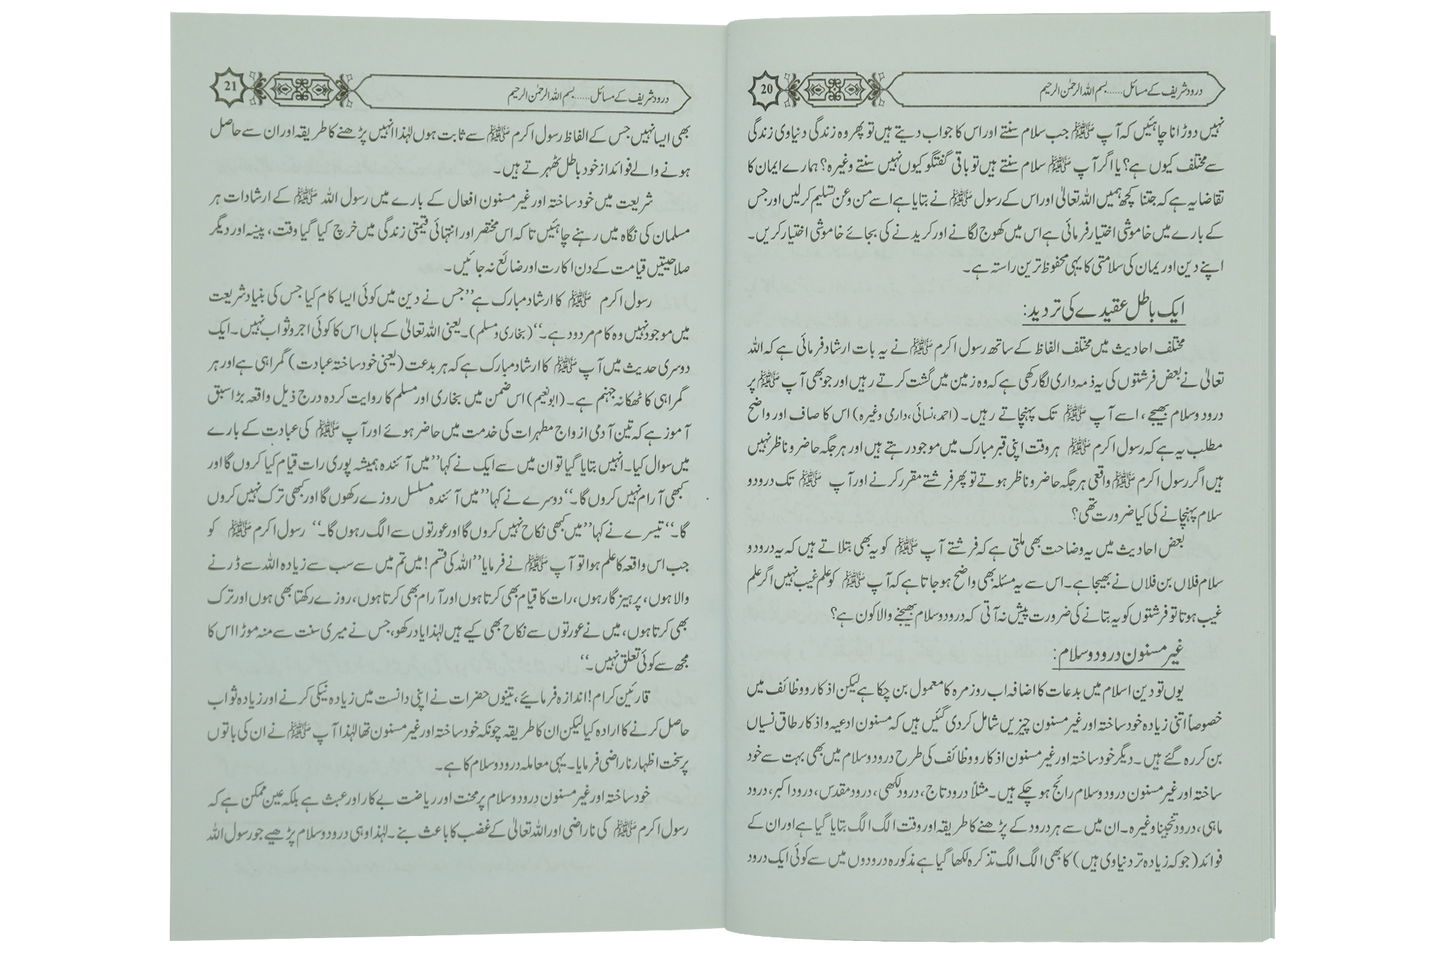 20
درود شریف کے مسائل......بسم اللہ الرحمٰن الرحیم
نہیں دوڑانا چاہئیں کہ آپ ﷺ جب سلام سنتے اور اس کا جواب دیتے ہیں تو پھر وہ زندگی دنیاوی زندگی
سے مختلف کیوں ہے؟ یا اگر آپ ﷺ سلام سنتے ہیں تو باقی گفتگو کیوں نہیں سنتے وغیرہ؟ ہمارے ایمان کا
تقاضا یہ ہے کہ جتنا کچھ ہمیں اللہ تعالیٰ اور اس کے رسول ﷺ نے بتایا ہے اسے من و عن تسلیم کرلیں اور جس
کے بارے میں خاموشی اختیار فرمائی ہے اس میں کھوج لگانے اور کریدنے کی بجائے خاموشی اختیار کریں۔
اپنے دین اور یمان کی سلامتی کا یہی محفوظ ترین راستہ ہے۔
ایک باطل عقیدے کی تردید:
مختلف احادیث میں مختلف الفاظ کے ساتھ رسول اکرم ﷺ نے یہ بات ارشاد فرمائی ہے کہ اللہ
تعالیٰ نے بعض فرشتوں کی یہ ذمہ داری لگا رکھی ہے کہ وہ زمین میں گشت کرتے رہیں اور جو بھی آپ ﷺ پر
درود وسلام بھیجے، اسے آپ ﷺ تک پہنچاتے رہیں۔ (احمد، نسائی، دارمی وغیرہ) اس کا صاف اور واضح
مطلب یہ ہے کہ رسول اکرم ﷺ ہر وقت اپنی قبر مبارک میں موجود رہتے ہیں اور ہر جگہ حاضر و ناظر نہیں
ہیں اگر رسول اکرم ﷺ واقعی ہر جگہ حاضر و ناظر ہوتے تو پھر فرشتے مقرر کرنے اور آپ ﷺ تک درود و
سلام پہنچانے کی کیا ضرورت تھی؟
بعض احادیث میں یہ وضاحت بھی ملتی ہے کہ فرشتے آپ ﷺ کو یہ بھی بتلاتے ہیں کہ یہ درود و
سلام فلاں بن فلاں نے بھیجا ہے۔ اس سے یہ مسئلہ بھی واضح ہو جاتا ہے کہ آپ ﷺ کو علم غیب نہیں اگر علم
غیب ہوتا تو فرشتوں کو یہ بتانے کی ضرورت پیش نہ آتی کہ درود و سلام بھیجنے والا کون ہے؟
غیر مسنون درود و سلام:
یوں تو دین اسلام میں بدعات کا اضافہ اب روز مرہ کا معمول بن چکا ہے لیکن اذکار و وظائف میں
خصوصاً اتنی زیادہ خود ساختہ اور غیر مسنون چیزیں شامل کردی گئیں ہیں کہ مسنون ادعیہ و اذکار طاق نسیاں
بن کر رہ گئے ہیں۔ دیگر خود ساختہ اور غیر مسنون اذکار و وظائف کی طرح درود و سلام میں بھی بہت سے خود
ساختہ اور غیر مسنون درود و سلام رائج ہو چکے ہیں۔ مثلاً درود تاج، درود لکھی، درود مقدس، درود اکبر، درود
ماہی، درود تنجینا وغیرہ۔ ان میں سے ہر درود کے پڑھنے کا طریقہ اور وقت الگ الگ بتایا گیا ہے اور ان کے
فوائد (جو کہ زیادہ تر دنیاوی ہیں) کا بھی الگ الگ تذکرہ لکھا گیا ہے مذکورہ درودوں میں سے کوئی ایک درود
21
درود شریف کے مسائل......بسم اللہ الرحمٰن الرحیم
بھی ایسا نہیں جس کے الفاظ رسول اکرم ﷺ سے ثابت ہوں لہٰذا انہیں پڑھنے کا طریقہ اور ان سے حاصل
ہونے والے فوائد از خود باطل ٹھہرتے ہیں۔
شریعت میں خود ساختہ اور غیر مسنون افعال کے بارے میں رسول اللہ ﷺ کے ارشادات ہر
مسلمان کی نگاہ میں رہنے چاہئیں تاکہ اس مختصر اور انتہائی قیمتی زندگی میں خرچ کیا گیا وقت، پیسہ اور دیگر
صلاحیتیں قیامت کے دن اکارت اور ضائع نہ جائیں۔
رسول اکرم ﷺ کا ارشاد مبارک ہے ’’جس نے دین میں کوئی ایسا کام کیا جس کی بنیاد شریعت
میں موجود نہیں وہ کام مردود ہے۔‘‘ (بخاری و مسلم)۔ یعنی اللہ تعالیٰ کے ہاں اس کا کوئی اجر و ثواب نہیں۔ ایک
دوسری حدیث میں آپ ﷺ کا ارشاد مبارک ہے کہ ہر بدعت (یعنی خود ساختہ عبادت) گمراہی ہے اور ہر
گمراہی کا ٹھکانہ جہنم ہے۔ (ابونعیم) اس ضمن میں بخاری اور مسلم کا روایت کردہ درج ذیل واقعہ بڑا سبق
آموز ہے کہ تین آدمی ازواج مطہرات کی خدمت میں حاضر ہوئے اور آپ ﷺ کی عبادت کے بارے
میں سوال کیا۔ انہیں بتایا گیا تو ان میں سے ایک نے کہا ’’میں آئندہ ہمیشہ پوری رات قیام کیا کروں گا اور
کبھی آرام نہیں کروں گا۔‘‘ دوسرے نے کہا ’’میں آئندہ مسلسل روزے رکھوں گا اور کبھی ترک نہیں کروں
گا۔‘‘ تیسرے نے کہا ’’میں کبھی نکاح نہیں کروں گا اور عورتوں سے الگ رہوں گا۔‘‘ رسول اکرم ﷺ کو
جب اس واقعہ کا علم ہوا تو آپ ﷺ نے فرمایا ’’اللہ کی قسم! میں تم میں سے سب سے زیادہ اللہ سے ڈرنے
والا ہوں، پرہیز گار ہوں، رات کا قیام بھی کرتا ہوں اور آرام بھی کرتا ہوں، روزے رکھتا بھی ہوں اور ترک
بھی کرتا ہوں، میں نے عورتوں سے نکاح بھی کیے ہیں لہٰذا یاد رکھو، جس نے میری سنت سے منہ موڑا اس کا
مجھ سے کوئی تعلق نہیں۔‘‘
قارئین کرام! اندازہ فرمائیے، تینوں حضرات نے اپنی دانست میں زیادہ نیکی کرنے اور زیادہ ثواب
حاصل کرنے کا ارادہ کیا لیکن ان کا طریقہ چونکہ خود ساختہ اور غیر مسنون تھا لہٰذا آپ ﷺ نے ان کی باتوں
پر سخت اظہار ناراضی فرمایا۔ یہی معاملہ درود و سلام کا ہے۔
خود ساختہ اور غیر مسنون درود و سلام پر محنت اور ریاضت بے کار اور عبث ہے بلکہ عین ممکن ہے کہ
رسول اکرم ﷺ کی ناراضی اور اللہ تعالیٰ کے غضب کا باعث بنے۔ لہٰذا وہی درود و سلام پڑھیے جو رسول اللہ